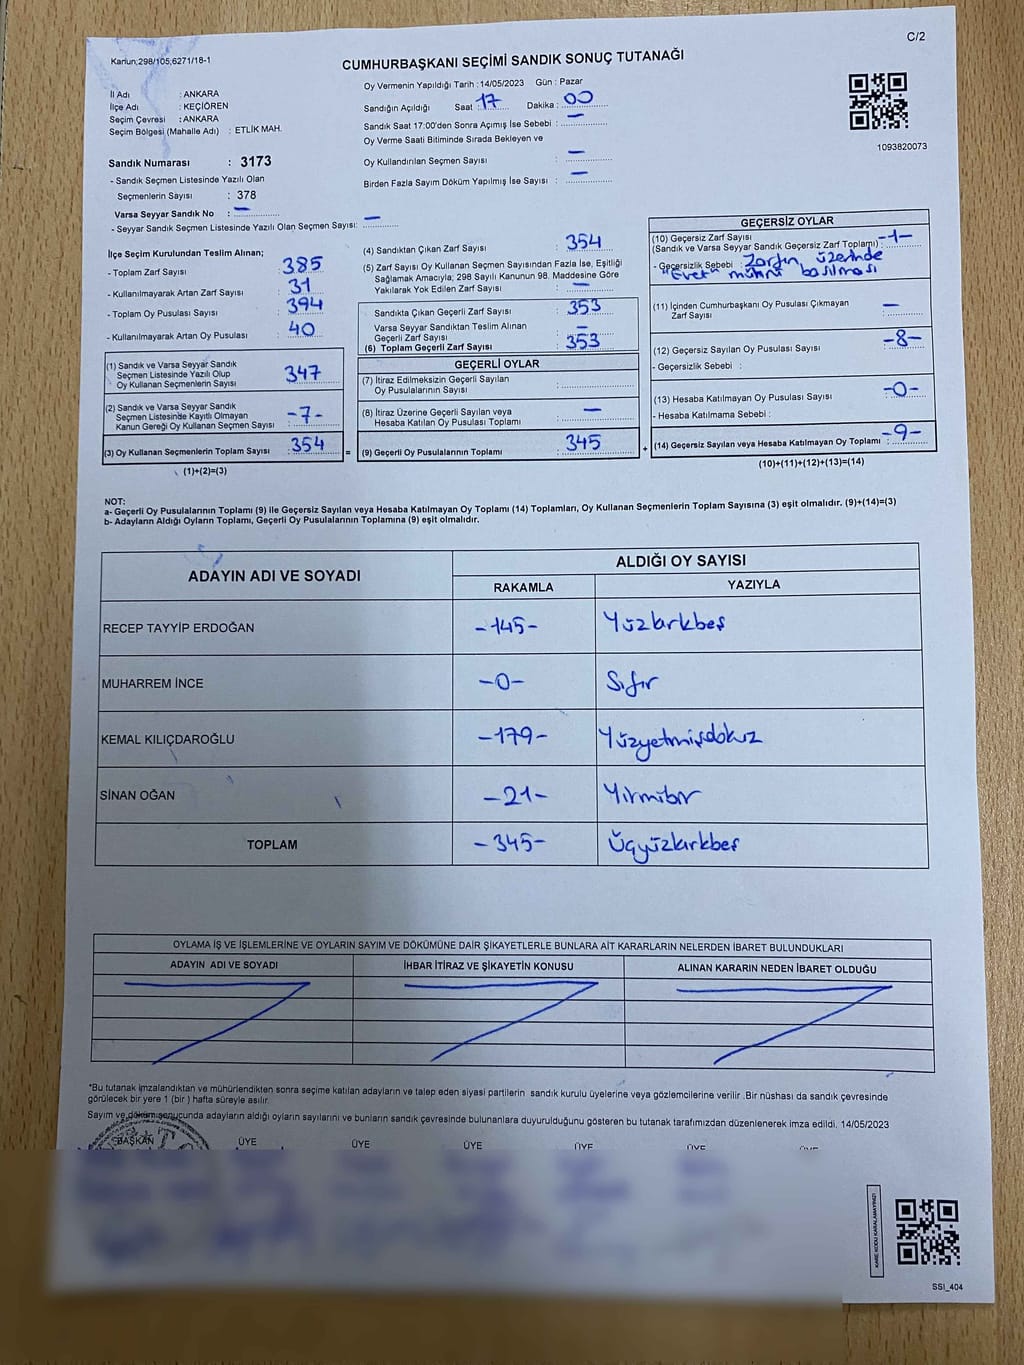 C/2
Kanun;298/105,6271/18-1
CUMHURBAŞKANI SEÇİMİ SANDIK SONUÇ TUTANAĞI
İl Adı : ANKARA
İlçe Adı : KEÇİÖREN
Seçim Çevresi : ANKARA
Seçim Bölgesi (Mahalle Adı) : ETLİK MAH.
Sandık Numarası : 3173
- Sandık Seçmen Listesinde Yazılı Olan
Seçmenlerin Sayısı : 378
Varsa Seyyar Sandık No : —
- Seyyar Sandık Seçmen Listesinde Yazılı Olan Seçmen Sayısı: —
Oy Vermenin Yapıldığı Tarih : 14/05/2023 Gün : Pazar
Sandığın Açıldığı Saat : 17 Dakika : 00
Sandık Saat 17:00'den Sonra Açımış İse Sebebi : —
Oy Verme Saati Bitiminde Sırada Bekleyen ve
Oy Kullandırılan Seçmen Sayısı : —
Birden Fazla Sayım Döküm Yapılmış İse Sayısı : —
1093820073
İlçe Seçim Kurulundan Teslim Alınan;
- Toplam Zarf Sayısı : 385
- Kullanılmayarak Artan Zarf Sayısı : 31
- Toplam Oy Pusulası Sayısı : 394
- Kullanılmayarak Artan Oy Pusulası : 40
(1) Sandık ve Varsa Seyyar Sandık
Seçmen Listesinde Yazılı Olup
Oy Kullanan Seçmenlerin Sayısı : 347
(2) Sandık ve Varsa Seyyar Sandık
Seçmen Listesinde Kayıtlı Olmayan
Kanun Gereği Oy Kullanan Seçmen Sayısı : -7-
(3) Oy Kullanan Seçmenlerin Toplam Sayısı : 354
(1)+(2)=(3)
(4) Sandıktan Çıkan Zarf Sayısı : 354
(5) Zarf Sayısı Oy Kullanan Seçmen Sayısından Fazla İse, Eşitliği
Sağlamak Amacıyla; 298 Sayılı Kanunun 98. Maddesine Göre
Yakılarak Yok Edilen Zarf Sayısı : —
Sandıkta Çıkan Geçerli Zarf Sayısı : 353
Varsa Seyyar Sandıktan Teslim Alınan
Geçerli Zarf Sayısı : —
(6) Toplam Geçerli Zarf Sayısı : 353
GEÇERLİ OYLAR
(7) İtiraz Edilmeksizin Geçerli Sayılan
Oy Pusulalarının Sayısı :
(8) İtiraz Üzerine Geçerli Sayılan veya
Hesaba Katılan Oy Pusulası Toplamı : —
= (9) Geçerli Oy Pusulalarının Toplamı : 345
GEÇERSİZ OYLAR
(10) Geçersiz Zarf Sayısı
(Sandık ve Varsa Seyyar Sandık Geçersiz Zarf Toplamı) : -1-
- Geçersizlik Sebebi : Zarfın üzerinde
"Evet" mührü basılması
(11) İçinden Cumhurbaşkanı Oy Pusulası Çıkmayan
Zarf Sayısı : —
(12) Geçersiz Sayılan Oy Pusulası Sayısı : -8-
- Geçersizlik Sebebi :
(13) Hesaba Katılmayan Oy Pusulası Sayısı : -0-
- Hesaba Katılmama Sebebi :
+ (14) Geçersiz Sayılan veya Hesaba Katılmayan Oy Toplamı : -9-
(10)+(11)+(12)+(13)=(14)
NOT:
a- Geçerli Oy Pusulalarının Toplamı (9) ile Geçersiz Sayılan veya Hesaba Katılmayan Oy Toplamı (14) Toplamları, Oy Kullanan Seçmenlerin Toplam Sayısına (3) eşit olmalıdır. (9)+(14)=(3)
b- Adayların Aldığı Oyların Toplamı, Geçerli Oy Pusulalarının Toplamına (9) eşit olmalıdır.
ADAYIN ADI VE SOYADI ALDIĞI OY SAYISI
RAKAMLA YAZIYLA
RECEP TAYYİP ERDOĞAN -145- Yüzkırkbeş
MUHARREM İNCE -0- Sıfır
KEMAL KILIÇDAROĞLU -179- Yüzyetmişdokuz
SİNAN OĞAN -21- Yirmibir
TOPLAM -345- Üçyüzkırkbeş
OYLAMA İŞ VE İŞLEMLERİNE VE OYLARIN SAYIM VE DÖKÜMÜNE DAİR ŞİKAYETLERLE BUNLARA AİT KARARLARIN NELERDEN İBARET BULUNDUKLARI
ADAYIN ADI VE SOYADI İHBAR İTİRAZ VE ŞİKAYETİN KONUSU ALINAN KARARIN NEDEN İBARET OLDUĞU
*Bu tutanak imzalandıktan ve mühürlendikten sonra seçime katılan adayların ve talep eden siyasi partilerin sandık kurulu üyelerine veya gözlemcilerine verilir .Bir nüshası da sandık çevresinde
görülecek bir yere 1 (bir ) hafta süreyle asılır.
Sayım ve döküm sonucunda adayların aldığı oyların sayılarını ve bunların sandık çevresinde bulunanlara duyurulduğunu gösteren bu tutanak tarafımızdan düzenlenerek imza edildi. 14/05/2023
BAŞKAN ÜYE ÜYE ÜYE ÜYE ÜYE ÜYE
KARE KODU KARALAMAYINIZ!
SSİ_404